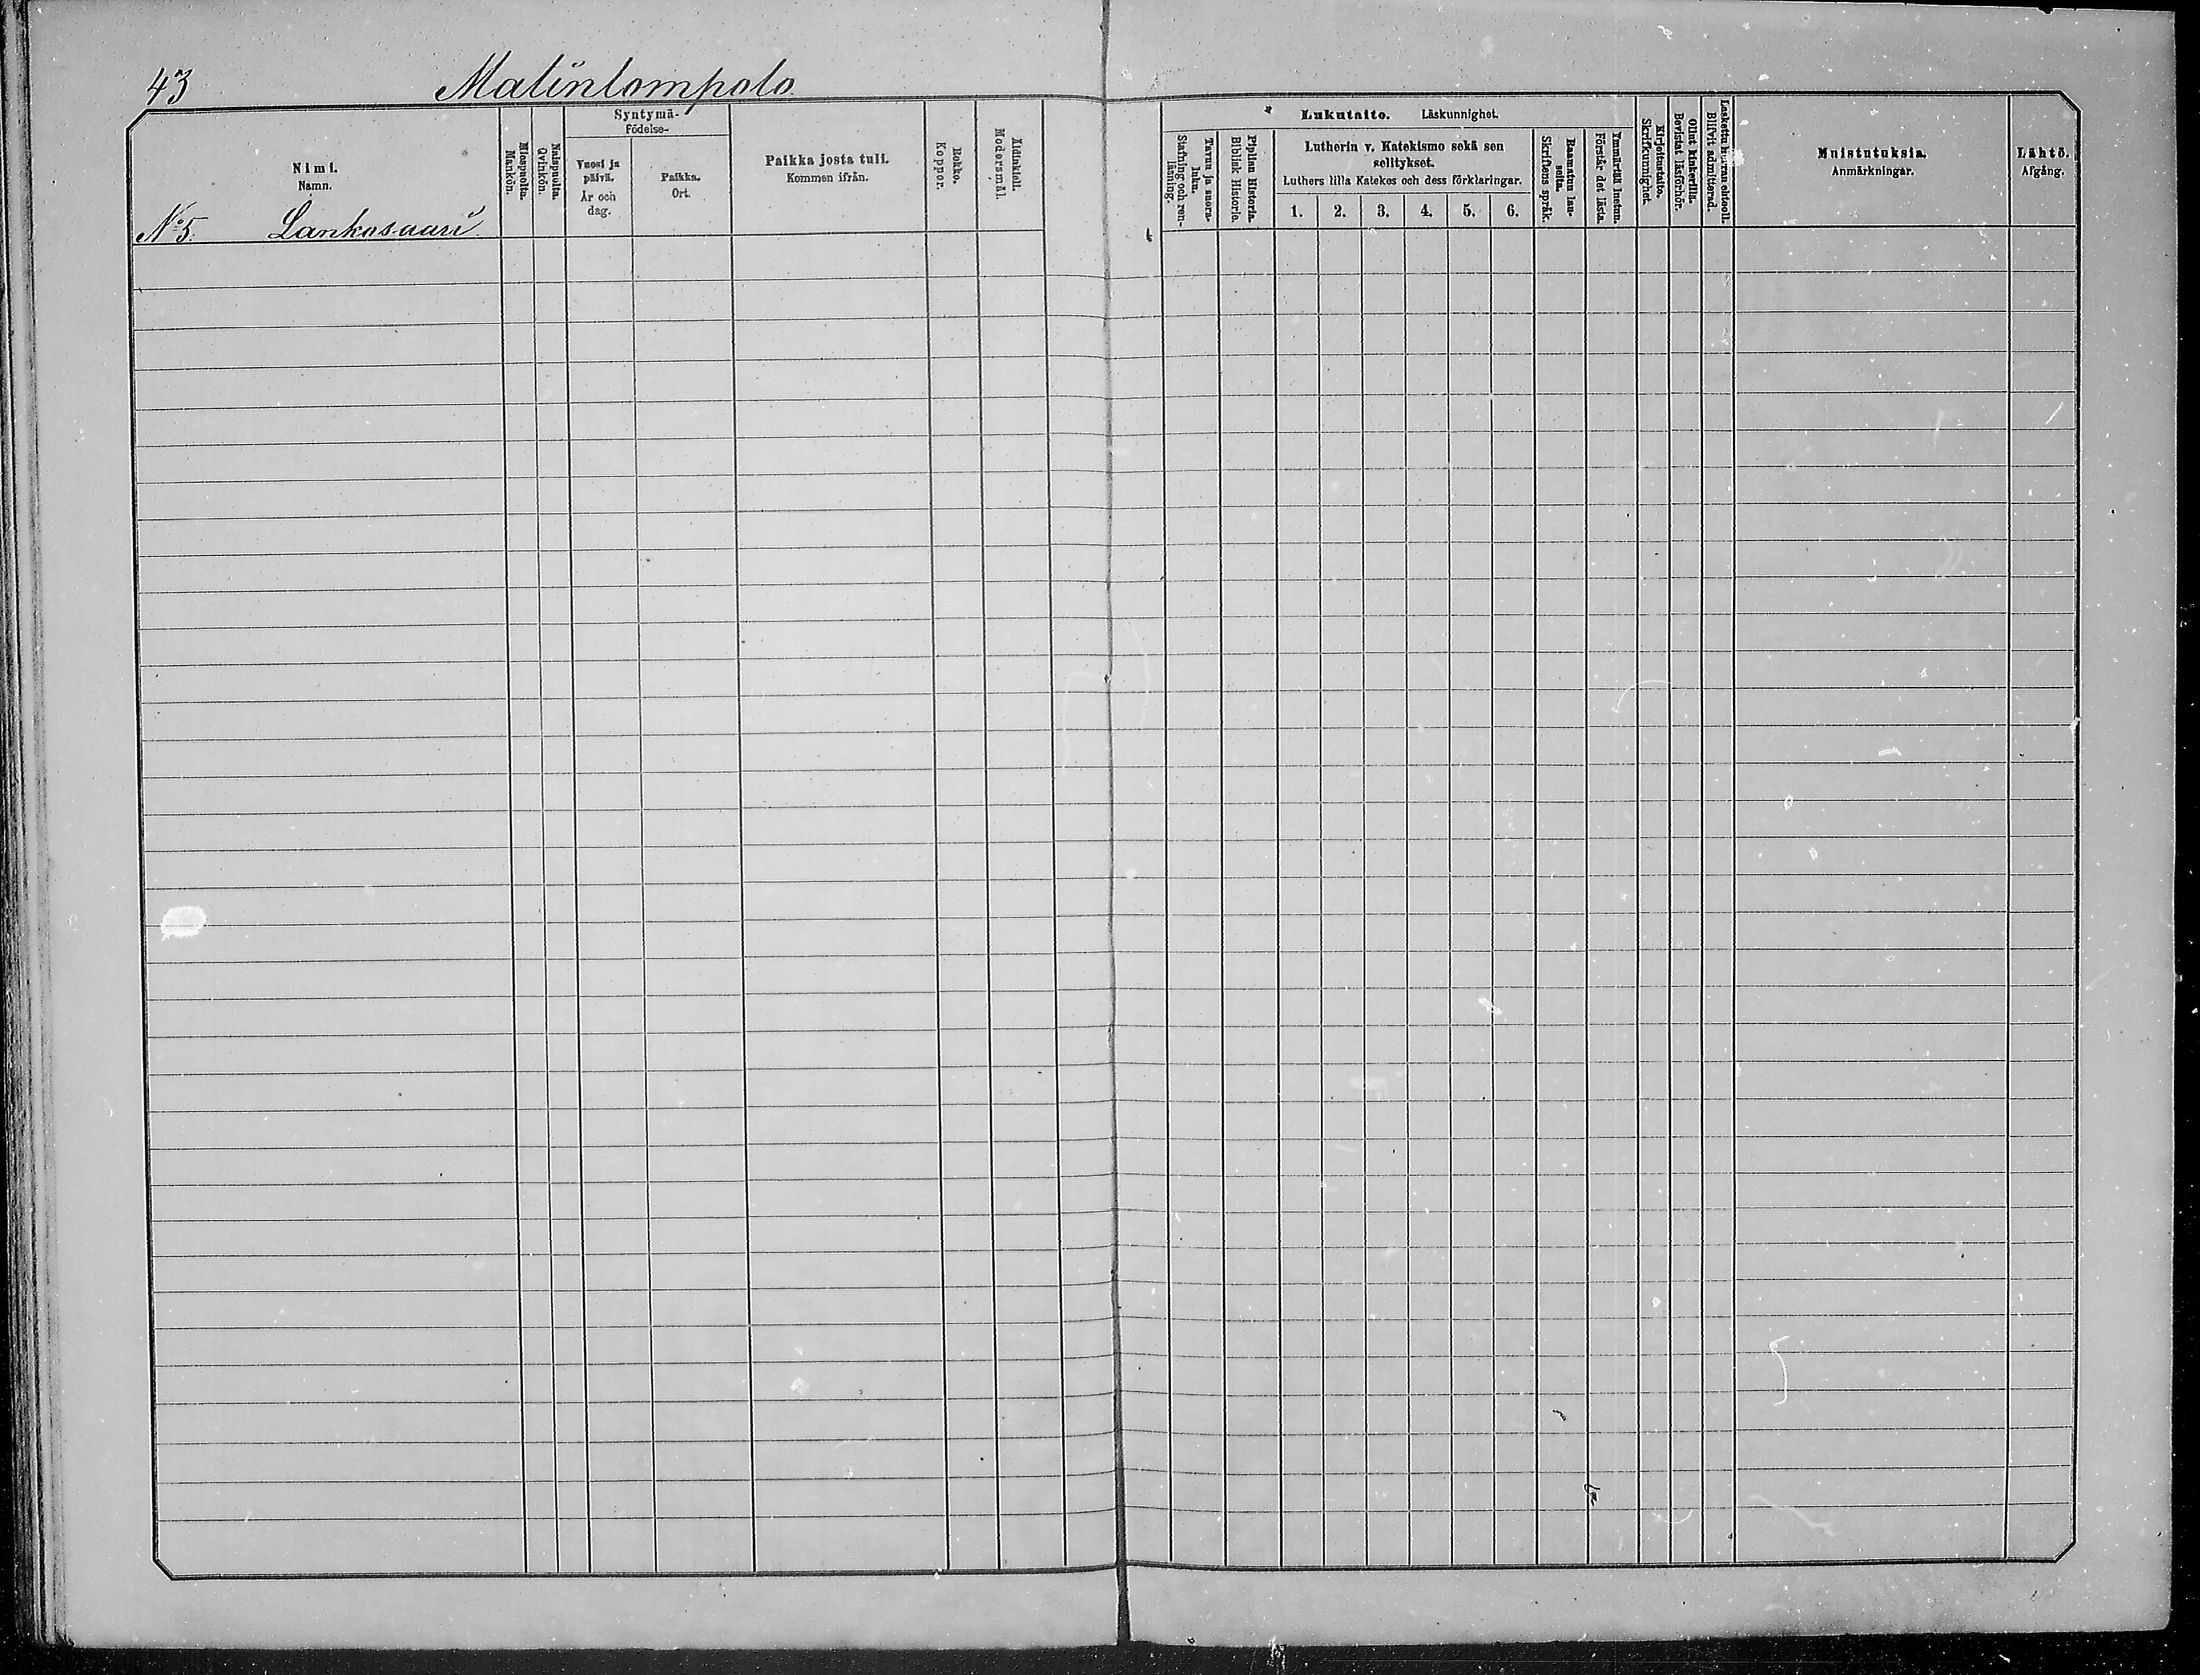 43 Matinlompolo
Syntymä-
Födelse-
Nimi.
Namn.
Miespuolta.
Mankön.
Naispuolta.
Qvinkön.
Vuosi ja
päivä.
År och
dag.
Paikka.
Ort.
Paikka josta tuli.
Kommen ifrån.
Rokko.
Koppor.
Äidinkieli.
Modersmål.
No 5. Lankosaari
Lukutaito. Läskunnighet.
Tavuu ja suora-
luku.
Stafning och ren-
läsning.
Piplian Historia.
Biblisk Historie.
Lutherin v. Katekismo sekä sen
selitykset.
Luthers lilla Katekes och dess förklaringar.
1. 2. 3. 4. 5. 6.
Raamatun lau-
seita.
Skriftens språk.
Ymmärtää luetun.
Förstår det lästa.
Kirjoitustaito.
Skrifkunnighet.
Ollut kinkerillä.
Bevistat läsförhör.
Laskettu herran ehtooll.
Blifvit admitterad.
Muistutuksia.
Anmärkningar.
Lähtö.
Afgång.